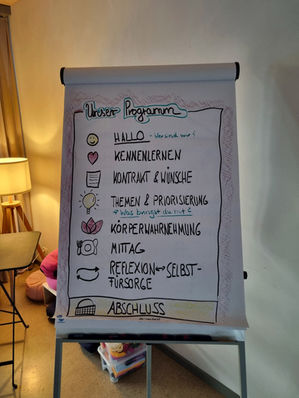 Unser Programm
HALLO - Wer sind wir?
KENNENLERNEN
KONTRAKT & WÜNSCHE
THEMEN & PRIORISIERUNG
→ Was bringst du mit?
KÖRPERWAHRNEHMUNG
MITTAG
REFLEXION ↔ SELBST-
FÜRSORGE
ABSCHLUSS